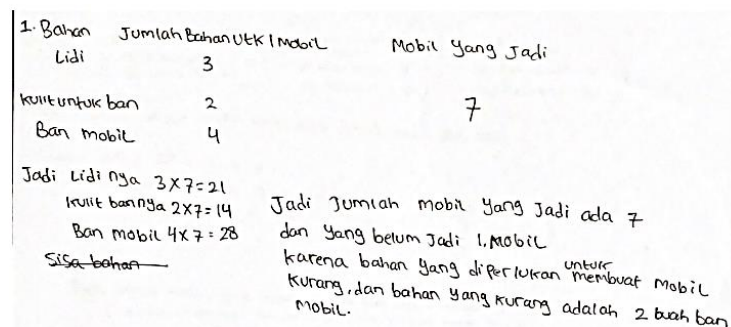 1. Bahan Jumlah Bahan Utk 1 Mobil Mobil Yang Jadi
Lidi 3
kulit untuk ban 2 7
Ban mobil 4
Jadi Lidi nya 3x7=21
kulit bannya 2x7=14
Ban mobil 4x7=28
Sisa bahan
Jadi Jumlah mobil yang Jadi ada 7
dan yang belum Jadi 1. Mobil
karena bahan yang diperlukan untuk membuat mobil
kurang, dan bahan yang kurang adalah 2 buah ban
mobil.